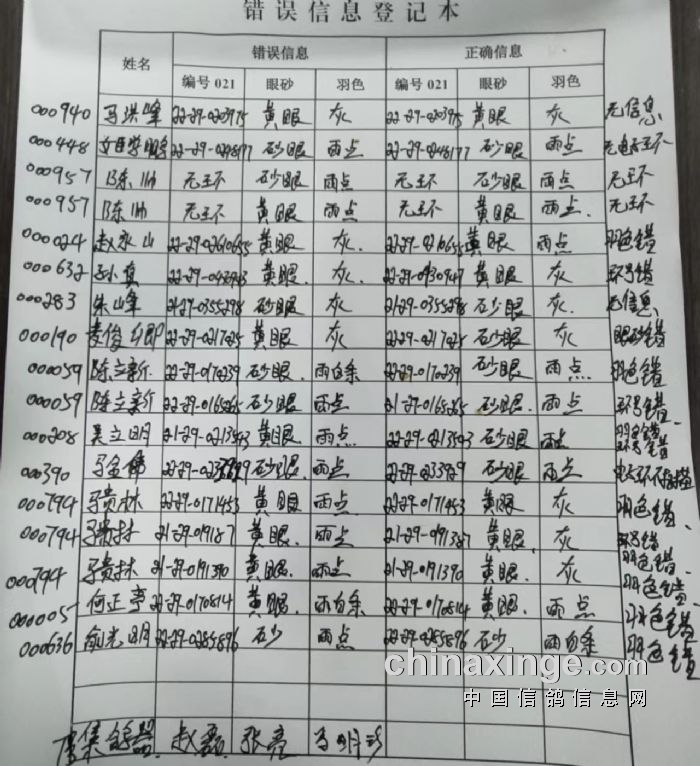 错误信息登记本
姓名 错误信息 正确信息
编号021 眼砂 羽色 编号021 眼砂 羽色
000940 马洪峰 22-29-0203975 黄眼 灰 22-29-0203975 黄眼 灰 无信息
000448 22-29-0248177 砂眼 雨点 22-29-0248177 砂眼 雨点
000957 陈帅 无环 砂眼 雨点 无环 砂眼 雨点 无环
000957 陈帅 无环 黄眼 雨点 无环 黄眼 雨点. 无环
000024 赵永山 黄眼 灰. 22-29-0210655 黄眼 雨点 羽色错
000632 孙真 黄眼. 灰. 22-29-0930947 黄眼 灰 环号错
000283 朱山峰 21-29-0355298 砂眼 灰 21-29-0355298 砂眼 灰. 无信息
000190 22-29-0217225 黄眼 灰 22-29-0217225 砂眼 灰 眼砂错
000059 陈立新 22-29-0170239 砂眼. 雨白条 22-29-0170239 砂眼 雨点. 羽色错
000059 陈立新 22-29-0165265 砂眼. 雨点 21-29-0165265 砂眼. 雨点 环号错.
000208 吴立明 21-29-0213543 黄眼 雨点 22-29-0213543 砂眼 雨点 环号错
000390 马金伟 砂眼. 雨点 22-29-0233929 砂眼 雨点
000794 马贵林 22-29-0171453 黄眼 雨点 22-29-0171453 黄眼 灰 羽色错.
000794 马贵林 21-29-019187 黄眼. 雨点 21-29-0191387 黄眼. 灰 环号错 羽色错.
000794 马贵林 21-29-0191390 黄眼. 雨点 21-29-0191390 黄眼 灰 羽色错
000005 何正亭 22-29-0170814 黄眼. 雨白条 22-29-0170814 黄眼. 雨点 羽色错
000636 俞光明 22-29-0285896 砂 雨点 22-29-0285896 砂 雨白条 羽色错
chinaxinge.com
中国信鸽信息网
集鸽器. 赵磊. 张亮 马明珍